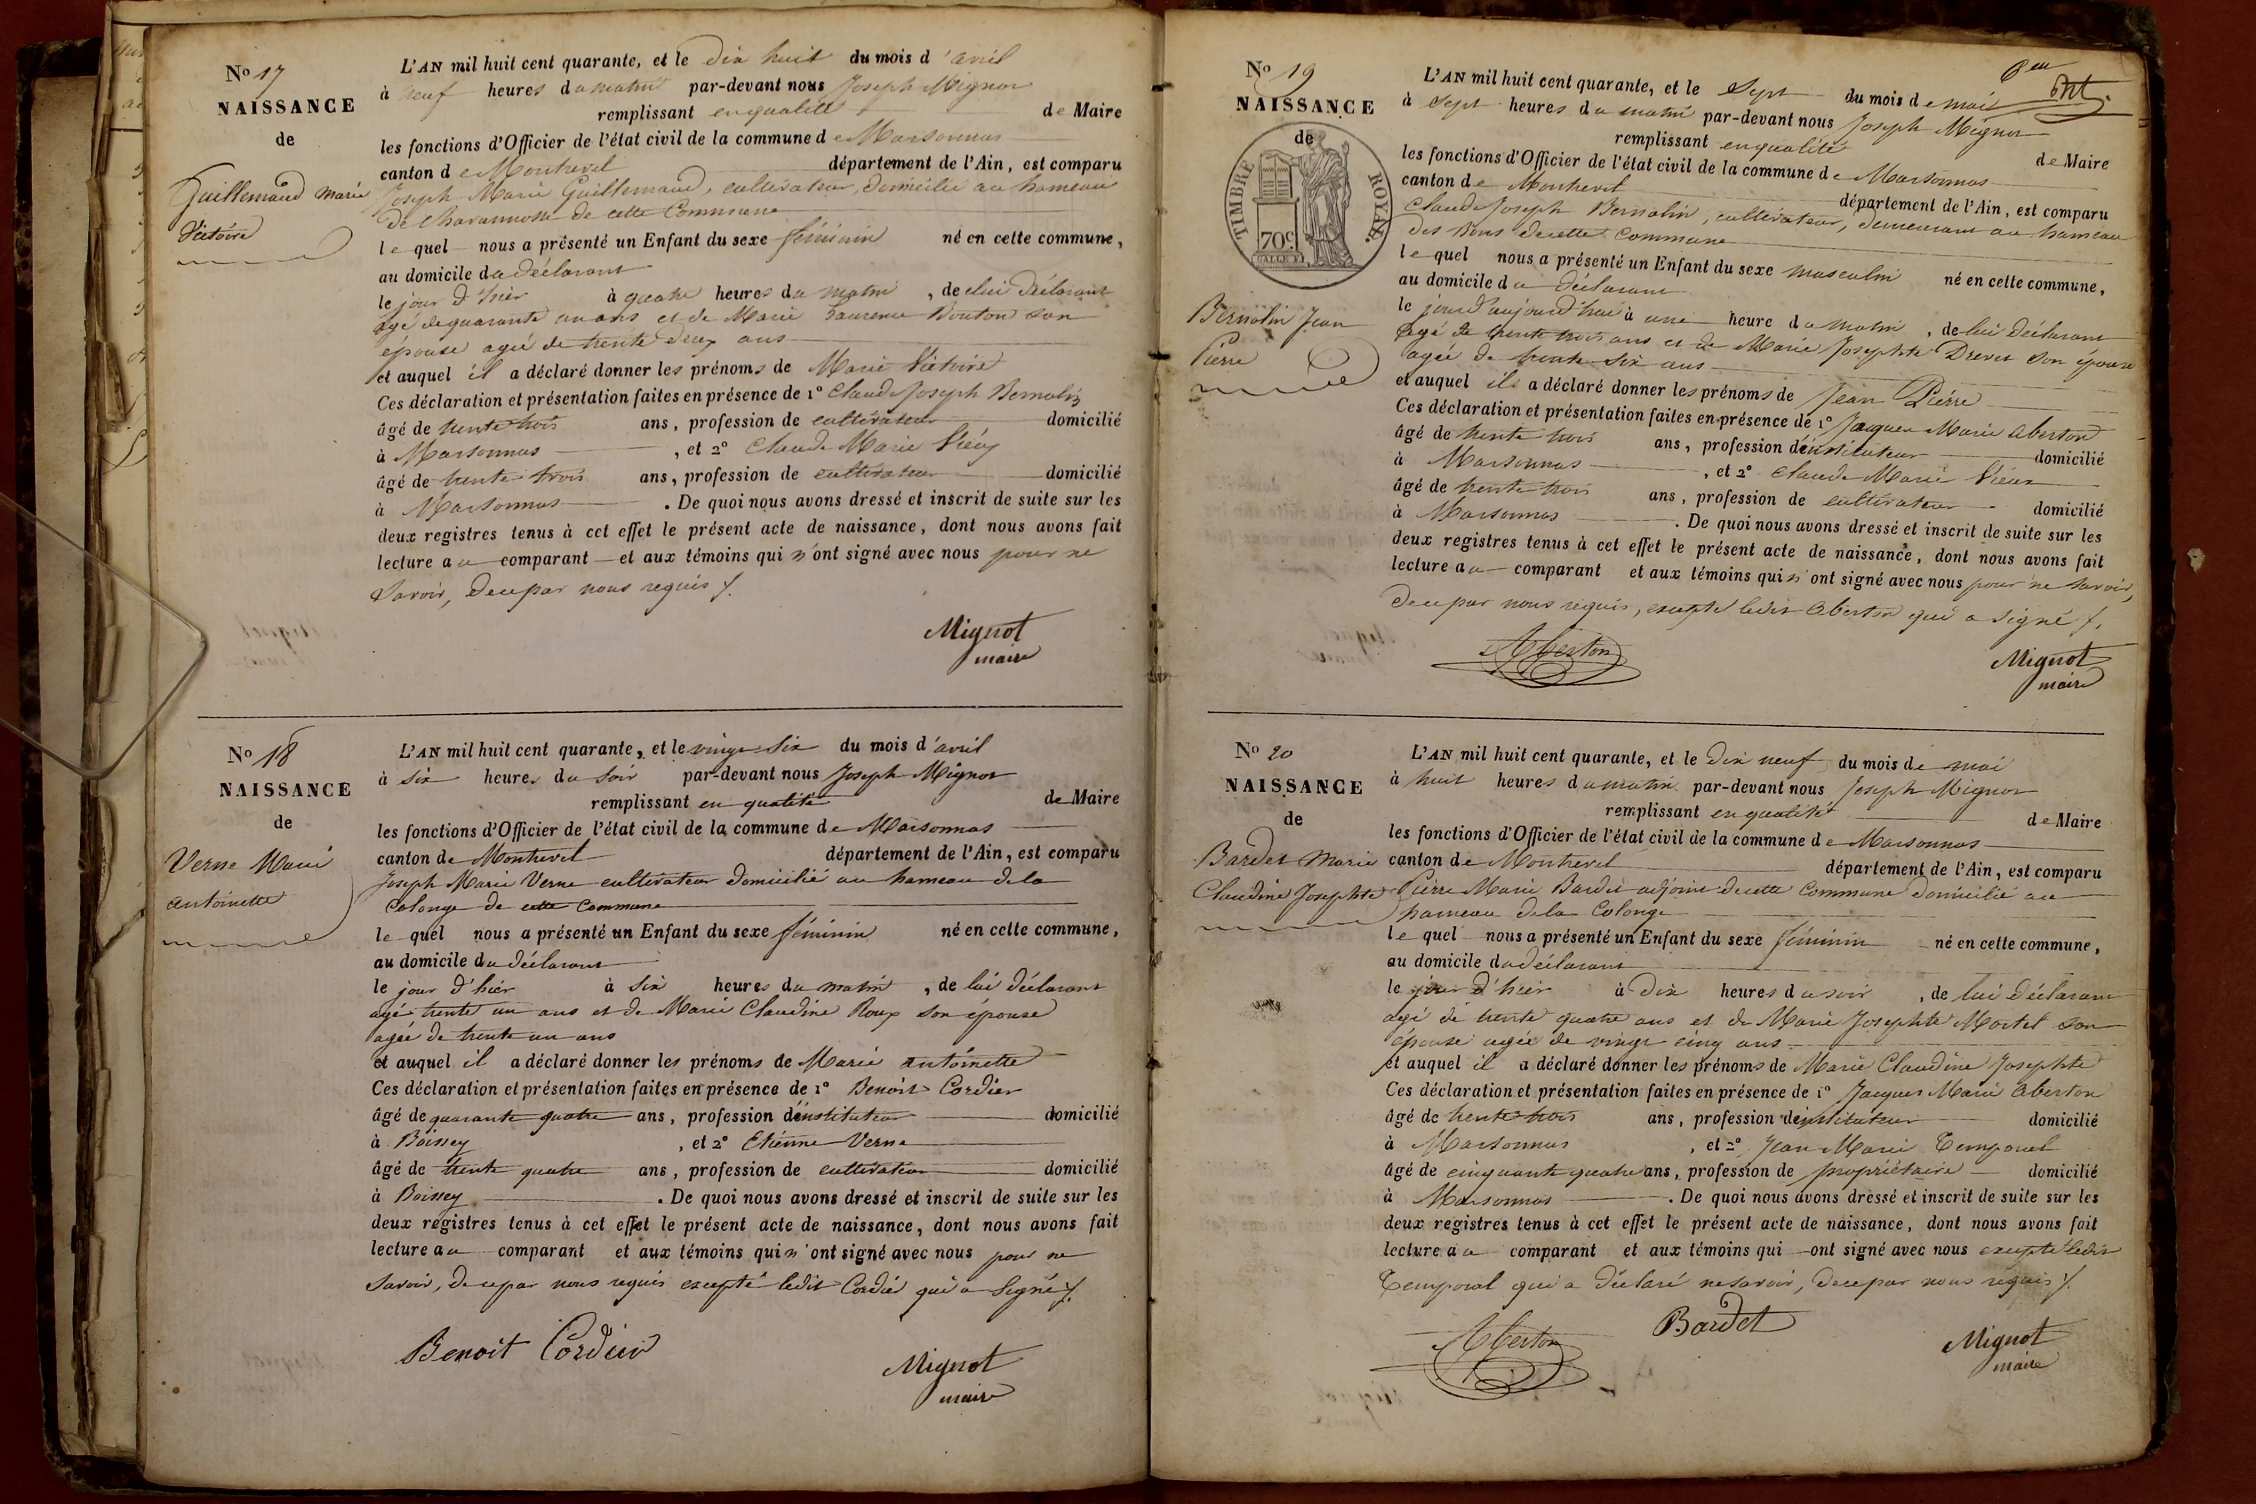 No 17
NAISSANCE
de
Guillemaud Marie
Victoire
L'AN mil huit cent quarante, et le dix huit du mois d'avril
à neuf heures du matin par-devant nous Joseph Mignot
remplissant en qualité de Maire
les fonctions d'Officier de l'état civil de la commune de Marsonnas
canton de Montrevel département de l'Ain, est comparu
Joseph Marie Guillemaud, cultivateur, domicilié au hameau
de Chavannosse de cette Commune
lequel nous a présenté un Enfant du sexe féminin né en cette commune,
au domicile du déclarant
le jour d'hier à quatre heures du matin, de lui déclarant
agé de quarante un ans et de Marie Laurence Bouton son
épouse agée de trente deux ans
et auquel il a déclaré donner les prénoms de Marie Victoire
Ces déclaration et présentation faites en présence de 1º Claude Joseph Bernolin
âgé de trente trois ans, profession de cultivateur domicilié
à Marsonnas, et 2º Claude Marie Viéux
âgé de trente trois ans, profession de cultivateur domicilié
à Marsonnas. De quoi nous avons dressé et inscrit de suite sur les
deux registres tenus à cet effet le présent acte de naissance, dont nous avons fait
lecture au comparant et aux témoins qui n'ont signé avec nous pour ne
savoir, de ce par nous requis /.
Mignot
maire
No 18
NAISSANCE
de
Verne Marie
antoinette
L'AN mil huit cent quarante, et le vingt-six du mois d'avril
à six heures du soir par-devant nous Joseph Mignot
remplissant en qualité de Maire
les fonctions d'Officier de l'état civil de la commune de Marsonnas
canton de Montrevel département de l'Ain, est comparu
Joseph Marie Verne cultivateur domicilié au hameau de la
Colonge de cette Commune
lequel nous a présenté un Enfant du sexe féminin né en cette commune,
au domicile du déclarant
le jour d'hier à six heures du matin, de lui déclarant
agé trente un ans et de Marie Claudine Roux son épouse
agée de trente un ans
et auquel il a déclaré donner les prénoms de Marie antoinette
Ces déclaration et présentation faites en présence de 1º Benoit Cordier
âgé de quarante quatre ans, profession d'instituteur domicilié
à Boissey, et 2º Etienne Verne
âgé de trente quatre ans, profession de cultivateur domicilié
à Boissey. De quoi nous avons dressé et inscrit de suite sur les
deux registres tenus à cet effet le présent acte de naissance, dont nous avons fait
lecture au comparant et aux témoins qui n'ont signé avec nous pour ne
savoir, de ce par nous requis excepté ledit Cordié qui a signé /.
Benoit Cordier
Mignot
maire
No 19
NAISSANCE
de
TIMBRE ROYAL.
70c
Bernolin Jean
Pierre
L'AN mil huit cent quarante, et le sept du mois de mai
à sept heures du matin par-devant nous Joseph Mignot
remplissant en qualité de Maire
les fonctions d'Officier de l'état civil de la commune de Marsonnas
canton de Montrevel département de l'Ain, est comparu
Claude Joseph Bernolin, cultivateur, demeurant au hameau
des Bons de cette Commune
lequel nous a présenté un Enfant du sexe masculin né en cette commune,
au domicile du déclarant
le jour d'aujourd'hui à une heure du matin, de lui déclarant
agé de trente trois ans et de Marie Josephte Drevet son épouse
agée de trente six ans
et auquel il a déclaré donner les prénoms de Jean Pierre
Ces déclaration et présentation faites en présence de 1º Jacques Marie Aberton
âgé de trente trois ans, profession d'instituteur domicilié
à Marsonnas, et 2º Claude Marie Viéux
âgé de trente trois ans, profession de cultivateur domicilié
à Marsonnas. De quoi nous avons dressé et inscrit de suite sur les
deux registres tenus à cet effet le présent acte de naissance, dont nous avons fait
lecture au comparant et aux témoins qui n'ont signé avec nous pour ne savoir,
de ce par nous requis, excepté ledit Aberton qui a signé /.
Aberton
Mignot
maire
No 20
NAISSANCE
de
Bardet Marie
Claudine Josephte
L'AN mil huit cent quarante, et le dix neuf du mois de mai
à huit heures du matin par-devant nous Joseph Mignot
remplissant en qualité de Maire
les fonctions d'Officier de l'état civil de la commune de Marsonnas
canton de Montrevel département de l'Ain, est comparu
Pierre Marie Bardet adjoint de cette Commune domicilié au
hameau de la Colonge
lequel nous a présenté un Enfant du sexe féminin né en cette commune,
au domicile du déclarant
le jour d'hier à dix heures du soir, de lui déclarant
agé de trente quatre ans et de Marie Josephte Mortel son
épouse agée de vingt cinq ans
et auquel il a déclaré donner les prénoms de Marie Claudine Josephte
Ces déclaration et présentation faites en présence de 1º Jacques Marie Aberton
âgé de trente trois ans, profession d'instituteur domicilié
à Marsonnas, et 2º Jean Marie Temporal
âgé de cinquante quatre ans, profession de propriétaire domicilié
à Marsonnas. De quoi nous avons dressé et inscrit de suite sur les
deux registres tenus à cet effet le présent acte de naissance, dont nous avons fait
lecture au comparant et aux témoins qui ont signé avec nous excepté ledit
Temporal qui a déclaré ne savoir, de ce par nous requis /.
Aberton
Bardet
Mignot
maire